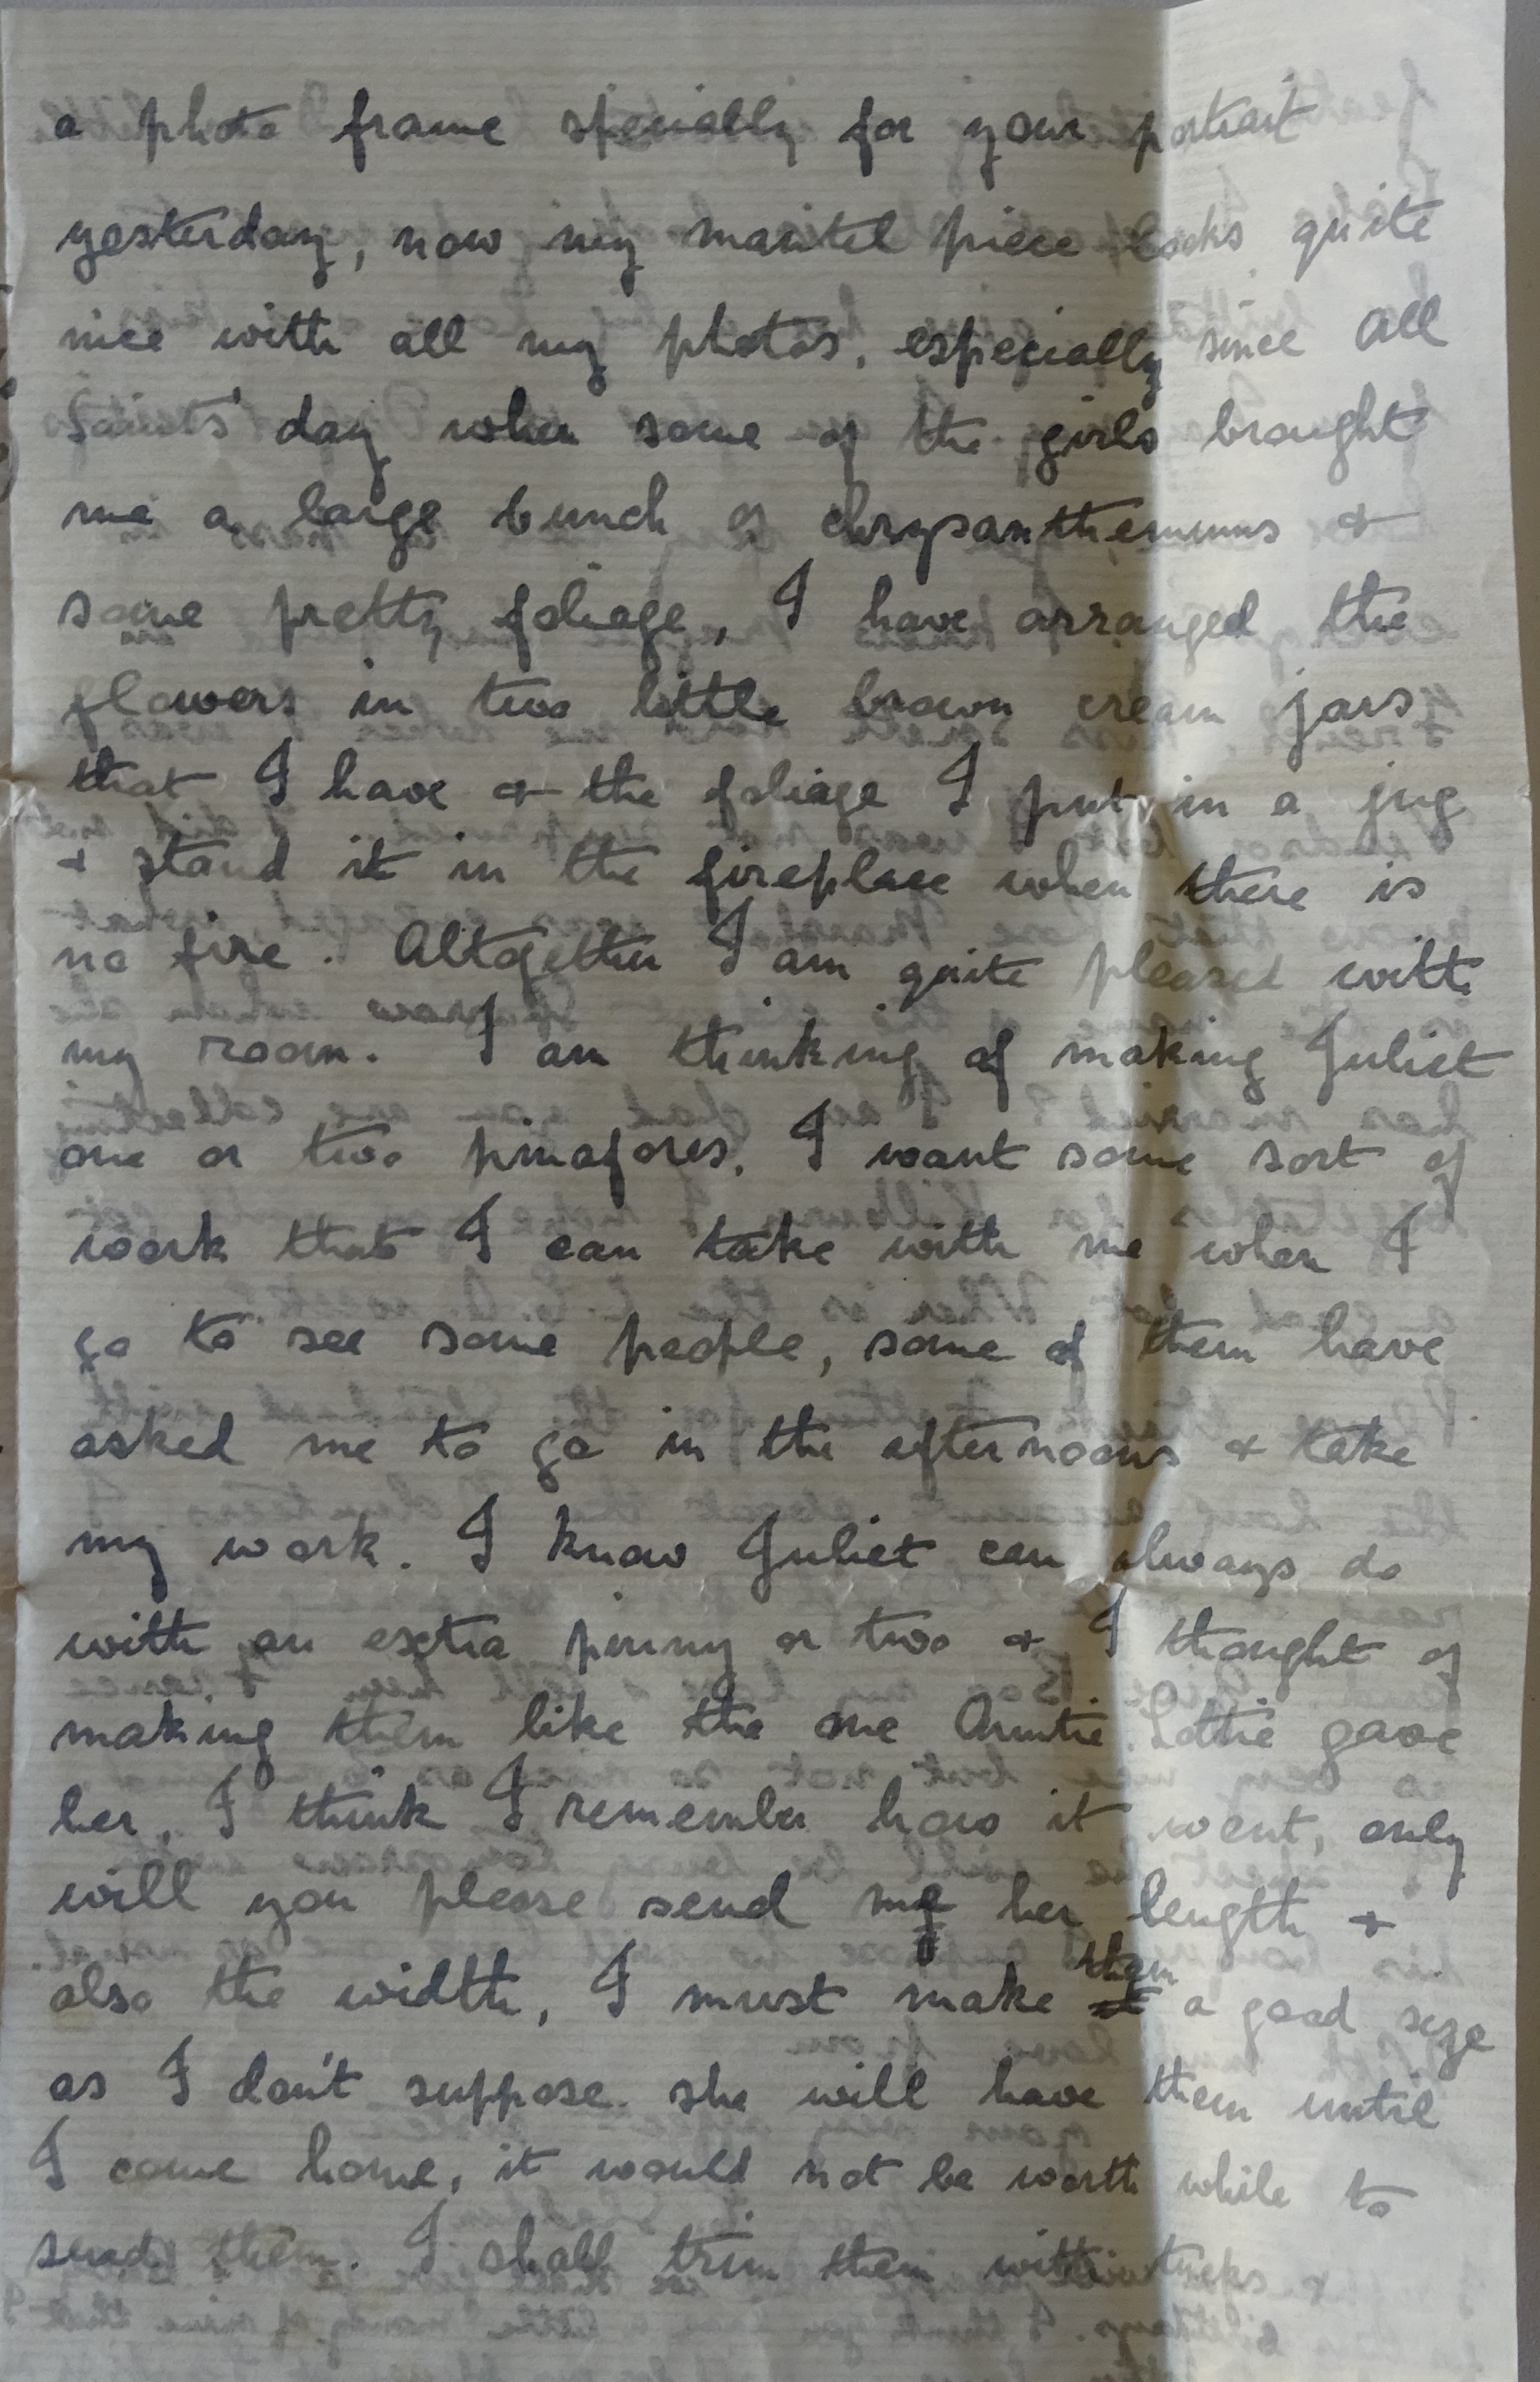 a photo frame specially for your portrait
yesterday, now my mantel piece looks quite
nice with all my photos, especially since All
Saints' day when some of the girls brought
me a large bunch of chrysanthemums &
some pretty foliage, I have arranged the
flowers in two little brown cream jars
that I have & the foliage I put in a jug
& stand it in the fireplace when there is
no fire. Altogether I am quite pleased with
my room. I am thinking of making Juliet
one or two pinafores. I want some sort of
work that I can take with me when I
go to see some people, some of them have
asked me to go in the afternoons & take
my work. I know Juliet can always do
with an extra pinny or two & I thought of
making them like the one Auntie Lottie gave
her, I think I remember how it went, only
will you please send me her length &
also the width, I must make them a good size
as I don't suppose she will have them until
I come home, it would not be worth while to
send them. I shall trim them with tucks